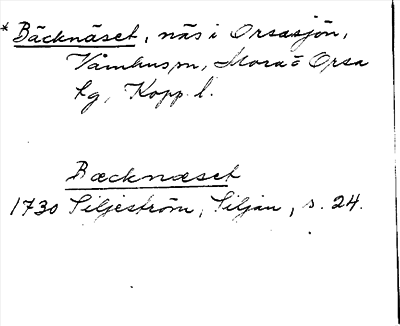 * Bäcknäset, näs i Orsasjön,
Våmhus sn, Mora o Orsa
tg, Kopp. l.
Bæcknæset
1730 Siljeström, Siljan, s. 24.